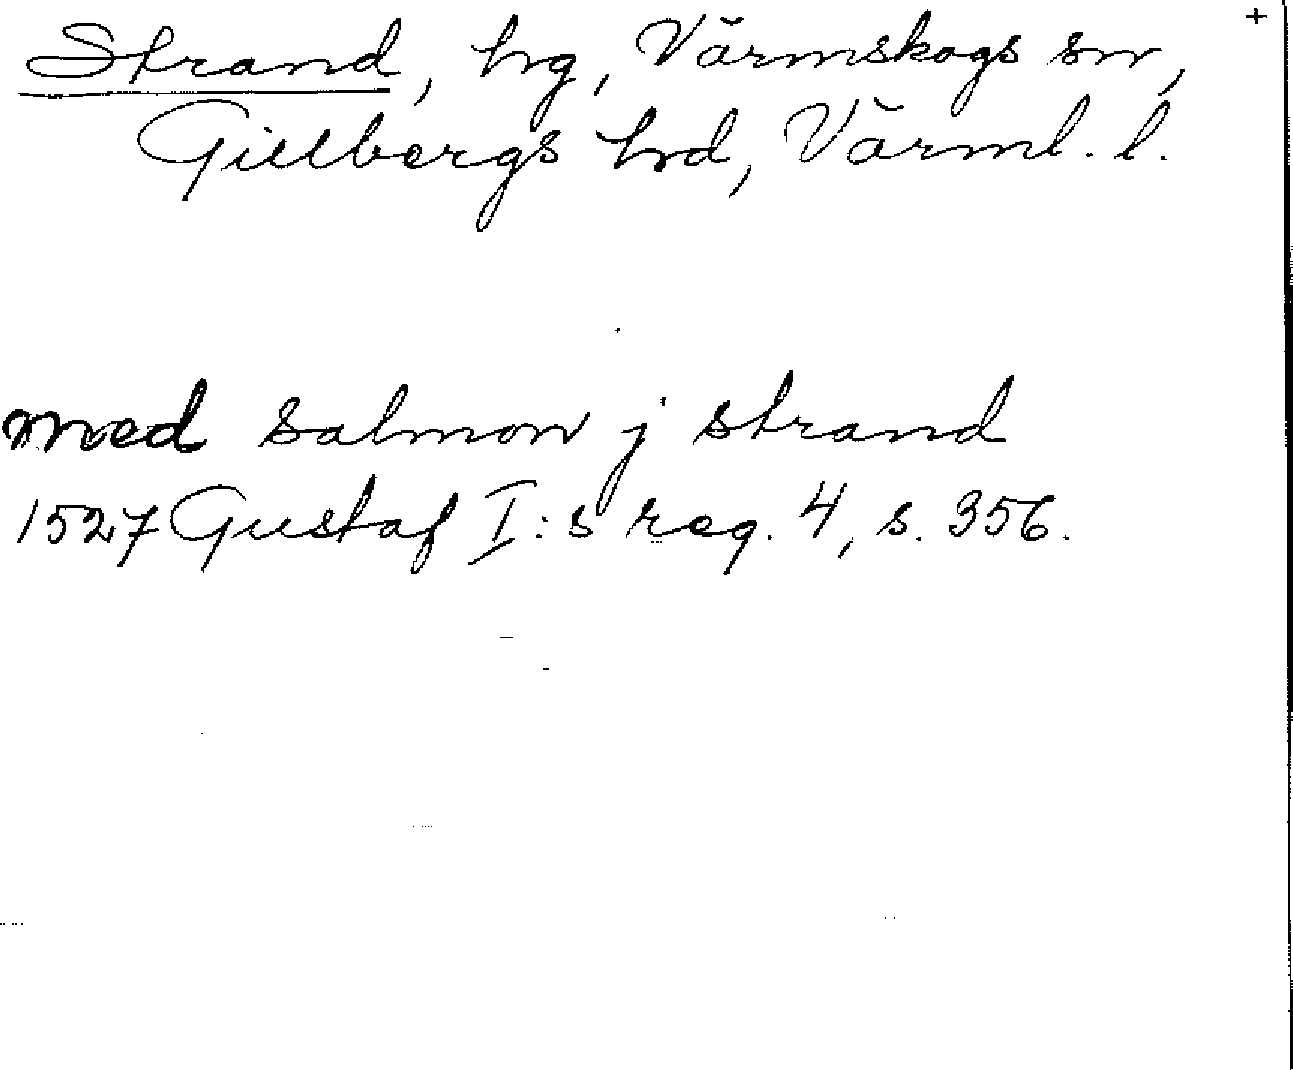 Strand, hg, Värmskogs sn, +
Gillbergs hd, Värml. l.
med salmon j strand
1527 Gustaf I:s reg. 4, s. 356.